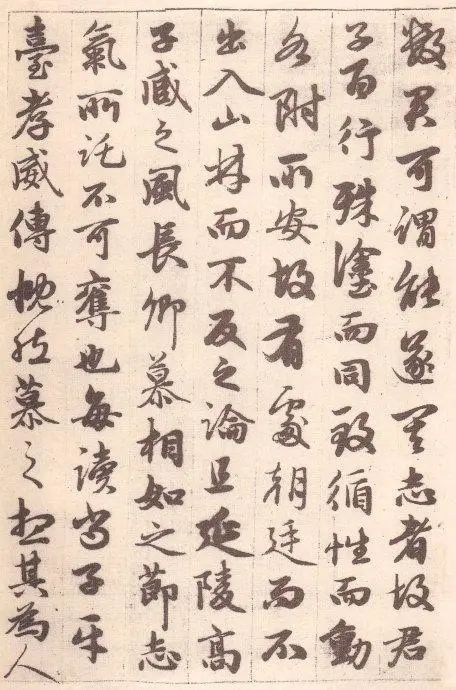 数君可謂能遂其志者故君
子百行殊塗而同致循性而動
各附所安故有處朝廷而不
出入山林而不反之論且延陵高
子臧之風長卿慕相如之節志
氣所託不可奪也每讀尚子平
臺孝威傳慨然慕之想其為人